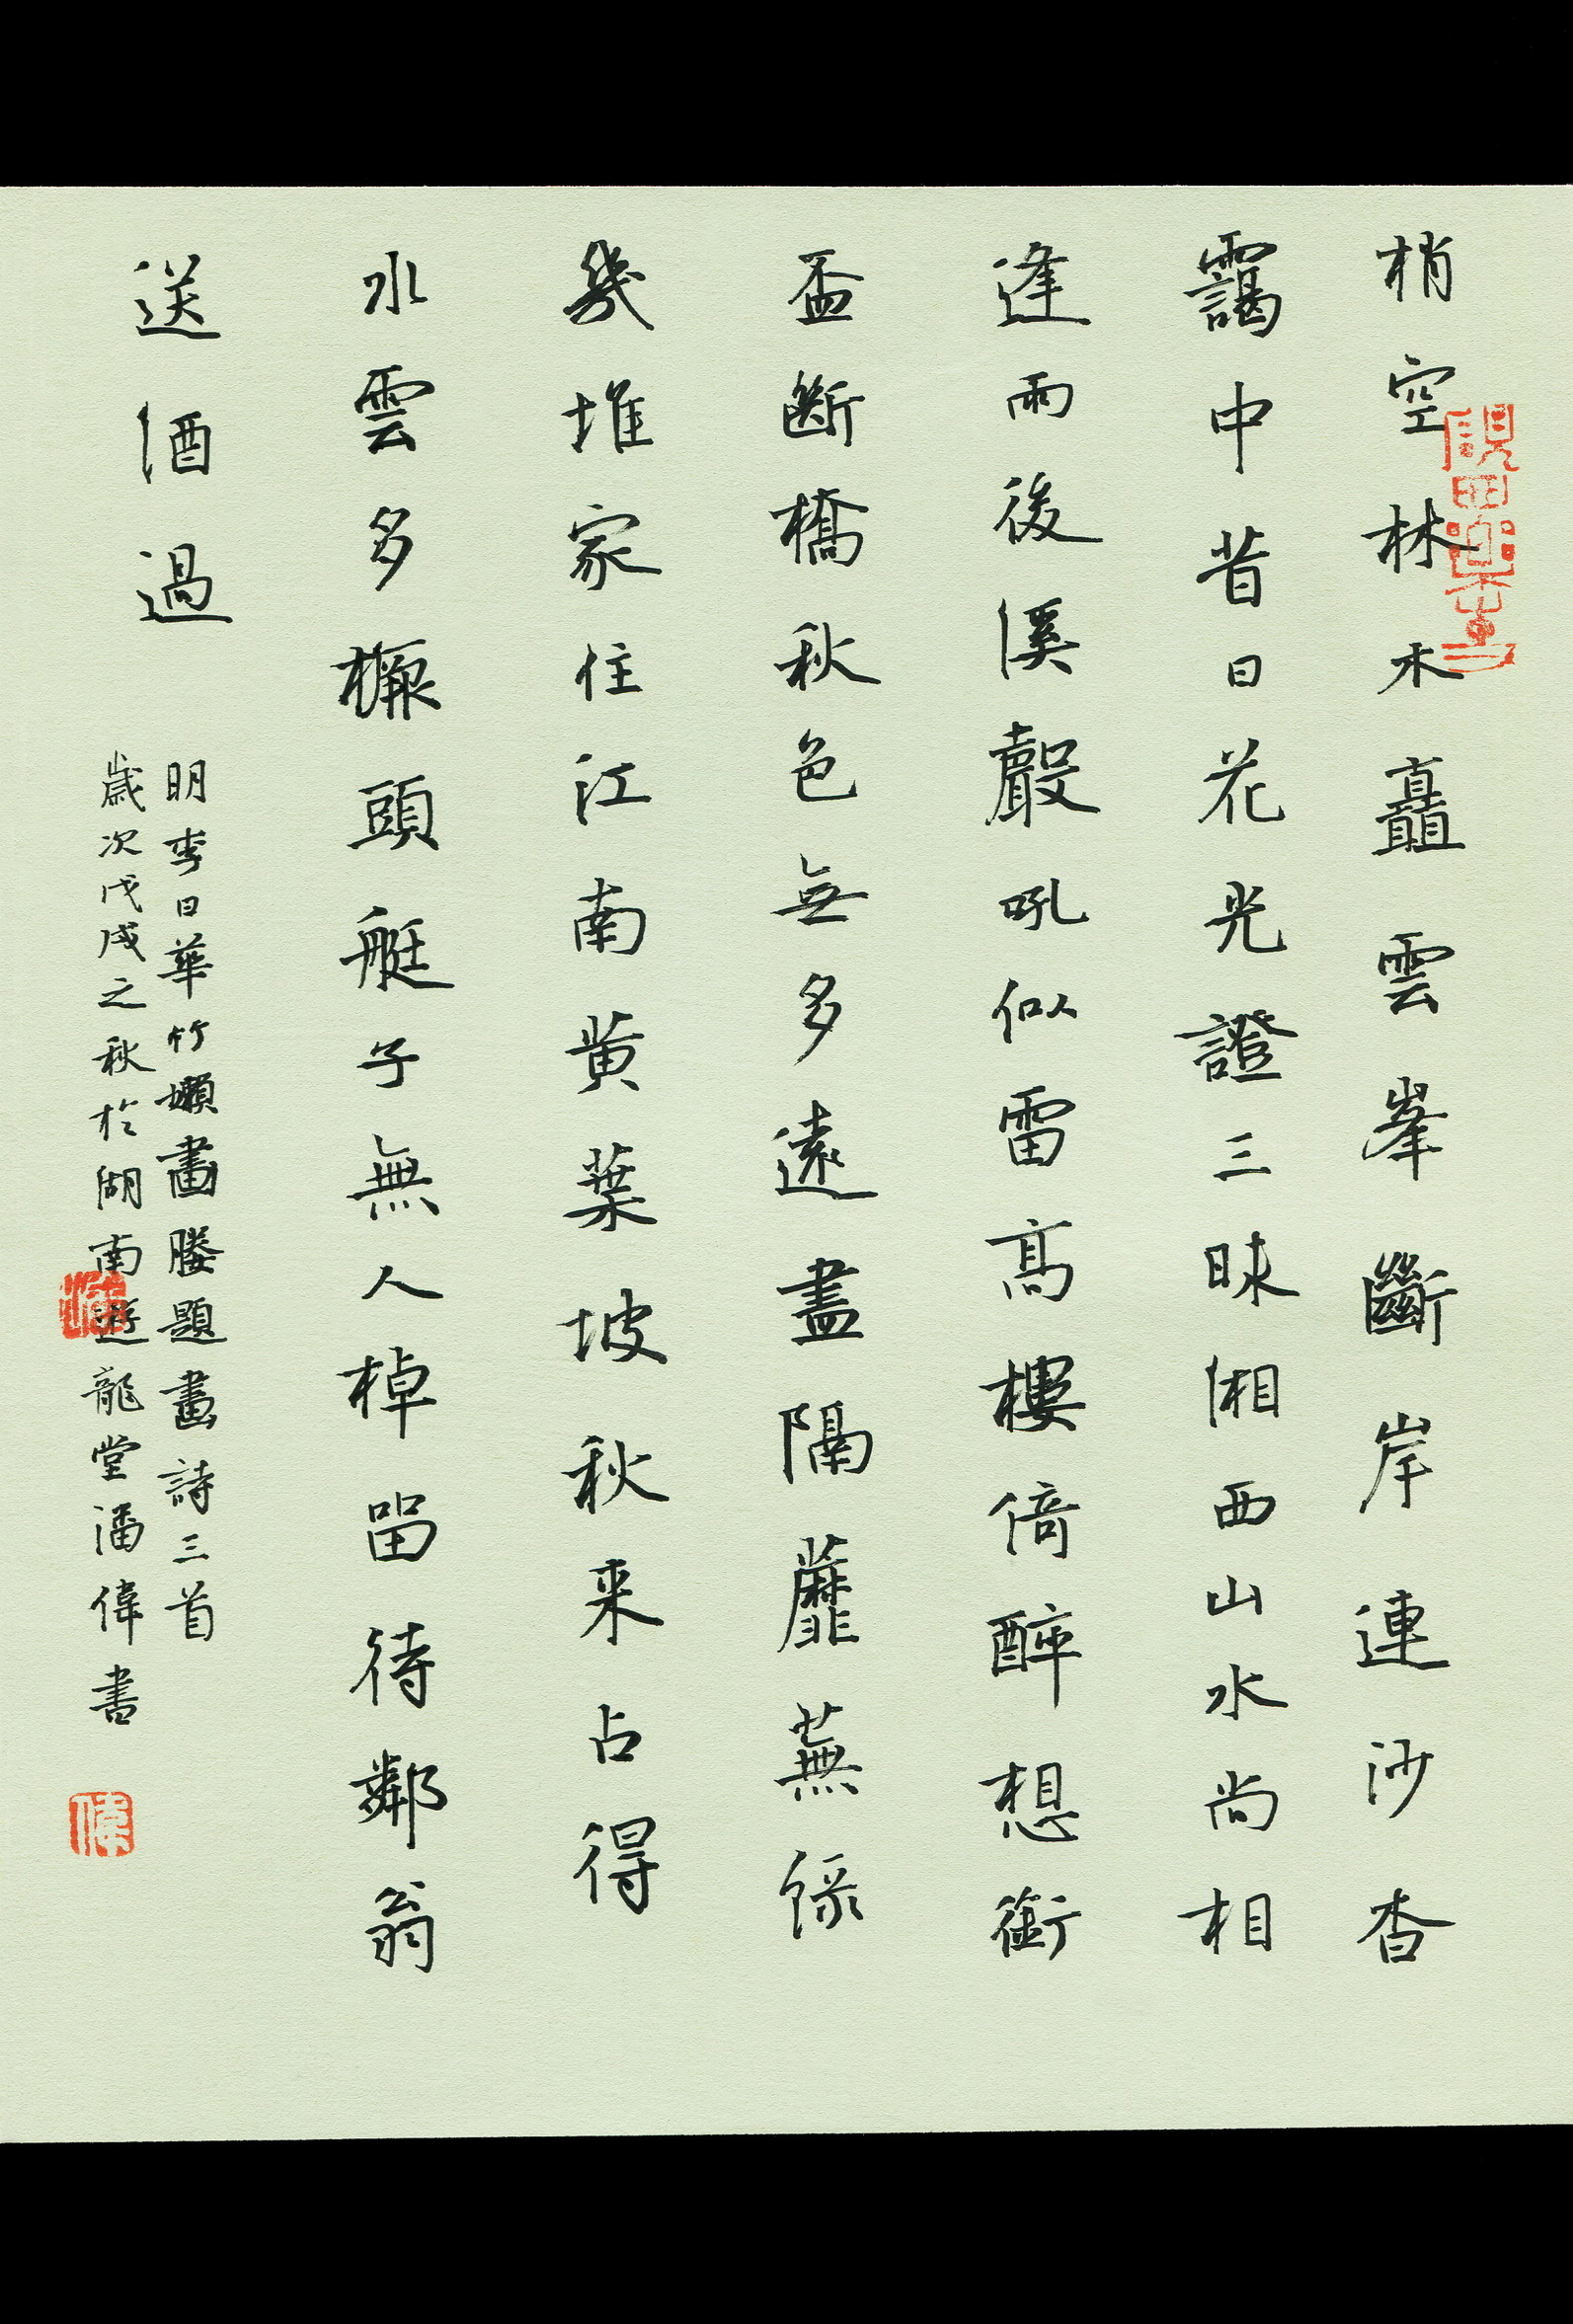 梢空林木矗雲峯斷岸連沙杳
靄中昔日花光證三昧湘西山水尚相
逢雨後溪聲吼似雷高樓倚醉想銜
盃斷橋秋色無多遠盡隔蘼蕪綠
幾堆家住江南黄葉坡秋来占得
水雲多槺頭艇子無人棹畱待鄰翁
送酒過
明李日華竹嬾畫媵題畫詩三首
歲次戊戌之秋於湖南遊龍堂潘偉書